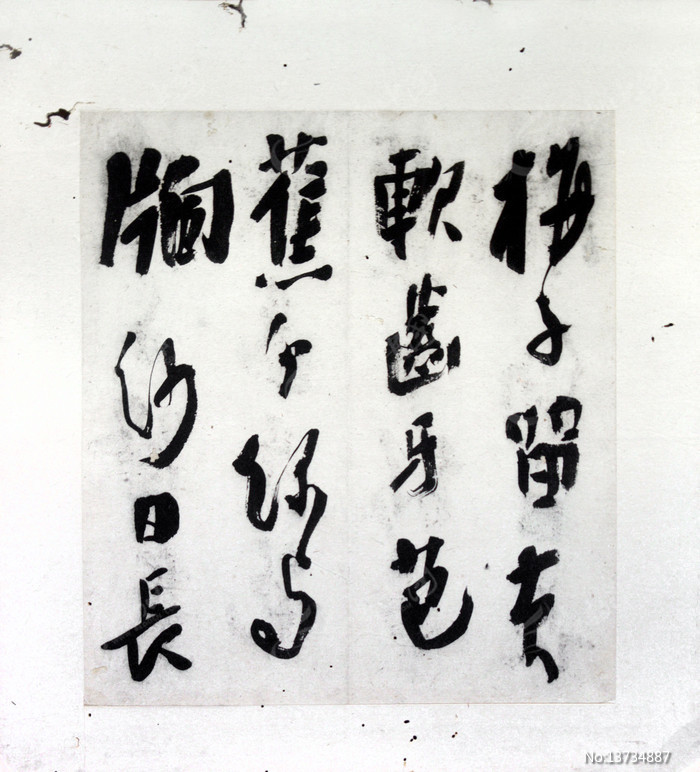 梅子留
軟齒牙芭
蕉分綠与
牕紗日長
No:13734887